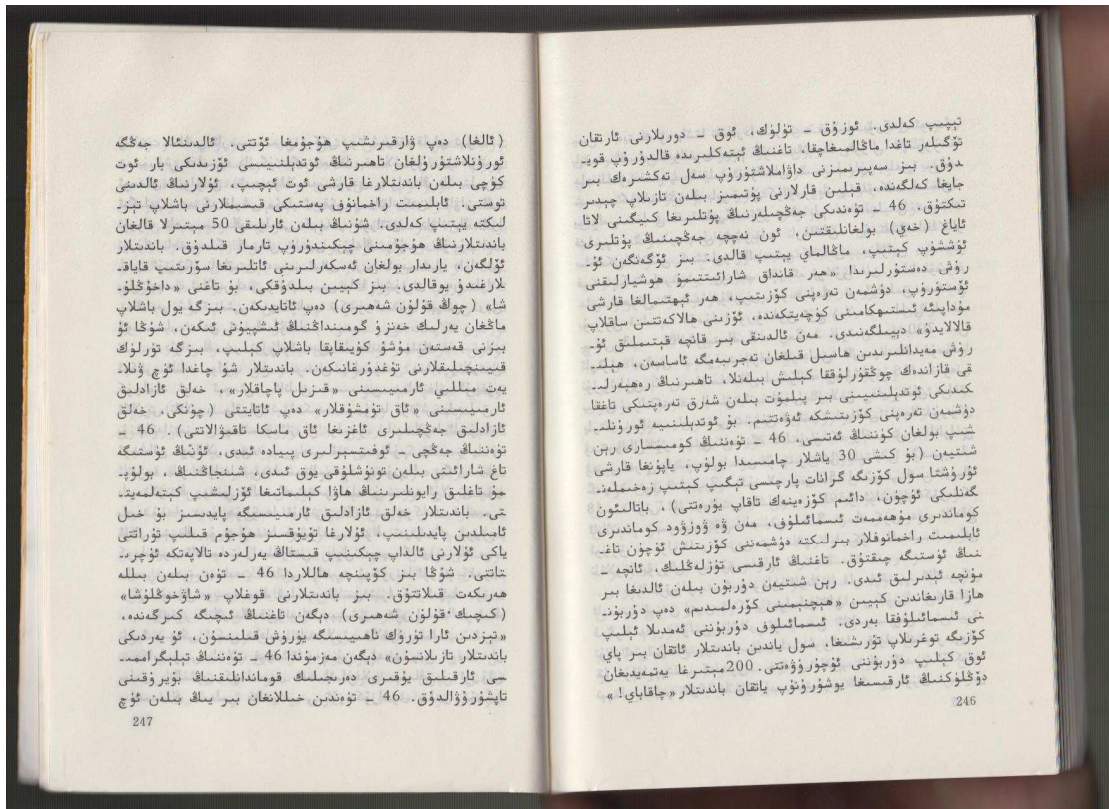 تېپىپ كەلدى. ئوزۇق ـ تۈلۈك، ئوق ـ دورىلارنى ئارتقان
تۆگىلەر تاغدا ماڭالمىغاچقا، تاغنىڭ ئېتەكلىرىدە قالدۇرۇپ قويـ
دۇق. بىز سەپىرىمىزنى داۋاملاشتۇرۇپ سەل تەكشىرەك بىر
جايغا كەلگەندە، قېلىن قارلارنى پۇتىمىز بىلەن تازىلاپ چېدىر
تىكتۇق. 46 ـ تۈەندىكى جەڭچىلەرنىڭ پۇتلىرىغا كىيگىنى لاتا
ئاياغ (خەي) بولغانلىقتىن، ئون نەچچە جەڭچىنىڭ پۇتلىرى
ئۈششۈپ كېتىپ، ماڭالماي يېتىپ قالدى. بىز ئۆگەنگەن ئۇـ
رۇش دەستۇرلىرىدا «ھەر قانداق شارائىتتىمۇ ھوشيارلىقنى
ئۆستۈرۈپ، دۈشمەن تەرەپنى كۆزىتىپ، ھەر ئېھتىمالغا قارشى
مۇداپىئە ئىستىھكامىنى كۈچەيتكەندە، ئۆزىنى ھالاكەتتىن ساقلاپ
قالالايدۇ» دېيىلگەنىدى. مەن ئالدىنقى بىر قانچە قېتىملىق ئۇـ
رۇش مەيدانلىرىدىن ھاسىل قىلغان تەجرىبەمگە ئاساسەن، ھېلىـ
قى قازاندەك چوڭقۇرلۇققا كېلىش بىلەنلا، تاھىرنىڭ رەھبەرلىـ
كىدىكى ئوتدېلىنىيىنى بىر پىلمۇت بىلەن شەرق تەرەپتىكى تاغقا
دۈشمەن تەرەپنى كۆزىتىشكە ئەۋەتتىم. بۇ ئوتدېلىنىيە ئورۇنلـ
شىپ بولغان كۈننىڭ ئەتىسى، 46 ـ تۈەننىڭ كومىسسارى رېن
شىتيەن (بۇ كىشى 30 ياشلار چامىسىدا بولۇپ، ياپۇنغا قارشى
ئۇرۇشتا سول كۆزىگە گرانات پارچىسى تېگىپ كېتىپ زەخمىلەنـ
گەنلىكى ئۈچۈن، دائىم كۆزەينەك تاقاپ يۈرەتتى)، باتالىئون
كوماندىرى مۇھەممەت ئىسمائىلوف، مەن ۋە ۋوزۋود كوماندىرى
ئابلىمىت راخمانوفلار بىرلىكتە دۈشمەننى كۆزىتىش ئۈچۈن تاغـ
نىڭ ئۈستىگە چىقتۇق. تاغنىڭ ئارقىسى تۈزلەڭلىك، ئانچە ـ
مۇنچە ئېدىرلىق ئىدى. رېن شىتيەن دۇربۇن بىلەن ئالدىغا بىر
ھازا قارىغاندىن كېيىن «ھېچنېمىنى كۆرەلمىدىم» دەپ دۇربۇنـ
نى ئىسمائىلوفقا بەردى. ئىسمائىلوف دۇربۇننى ئەمدىلا ئېلىپ
كۆزىگە توغرىلاپ تۇرىشىغا، سول ياندىن باندىتلار ئاتقان بىر پاي
ئوق كېلىپ دۇربۇننى ئۇچۇرۇۋەتتى. 200 مېتىرغا يەتمەيدىغان
دۆڭلۈكنىڭ ئارقىسىغا يوشۇرۇنۇپ ياتقان باندىتلار «چاقاباي!»
246
(ئالغا): دەپ ۋارقىرىشىپ ھۇجۇمغا ئۆتتى. ئالدىنئالا جەڭگە
ئورۇنلاشتۇرۇلغان تاھىرنىڭ ئوتدېلىنىيىسى ئۆزىدىكى بار ئوت
كۈچى بىلەن باندىتلارغا قارشى ئوت ئېچىپ، ئۇلارنىڭ ئالدىنى
توستى. ئابلىمىت راخمانوف پەستىكى قىسىملارنى باشلاپ تېزـ
لىكتە يېتىپ كەلدى، شۇنىڭ بىلەن ئارىلىقى 50 مېتىرلا قالغان
باندىتلارنىڭ ھۇجۇمىنى چېكىندۈرۈپ تارمار قىلدۇق. باندىتلار
ئۆلگەن، يارىدار بولغان ئەسكەرلىرىنى ئاتلىرىغا سۆرىتىپ قاياقـ
لارغىدۇ يوقالدى. بىز كېيىن بىلدۇقكى، بۇ تاغنى «داخۇڭلۇـ
شا» (چوڭ قۇلۇن شەھىرى) دەپ ئاتايدىكەن. بىزگە يول باشلاپ
ماڭغان يەرلىك خەنزۇ گومىنداڭنىڭ ئىشپىيۇنى ئىكەن، شۇڭا ئۇ
بىزنى قەستەن مۇشۇ كۇيىقاپقا باشلاپ كېلىپ، بىزگە تۈرلۈك
قىيىنچىلىقلارنى تۇغدۇرغانىكەن. باندىتلار شۇ چاغدا ئۈچ ۋىلاـ
يەت مىللىي ئارمىيىسىنى «قىزىل پاچاقلار»، خەلق ئازادلىق
ئارمىيىسىنى «ئاق تۇمشۇقلار» دەپ ئاتايتتى (چۈنكى، خەلق
ئازادلىق جەڭچىلىرى ئاغزىغا ئاق ماسكا تاقىۋالاتتى). 46 ـ
تۈەننىڭ جەڭچى ـ ئوفىتسېرلىرى پىيادە ئىدى، ئۇنىڭ ئۈستىگە
تاغ شارائىتى بىلەن تونۇشلۇقى يوق ئىدى، شىنجاڭنىڭ، بولۇپـ
مۇ تاغلىق رايونلىرىنىڭ ھاۋا كىلىماتىغا ئۆزلىشىپ كېتەلمەيتـ
تى. باندىتلار خەلق ئازادلىق ئارمىيىسىگە پايدىسىز بۇ خىل
ئامىلدىن پايدىلىنىپ، ئۇلارغا تۇيۇقسىز ھۇجۇم قىلىپ تۇراتتى
ياكى ئۇلارنى ئالداپ چېكىنىپ قىستاڭ يەرلەردە تالاپەتكە ئۇچرىـ
تاتتى. شۇڭا بىز كۆپىنچە ھاللاردا 46 ـ تۈەن بىلەن بىللە
ھەرىكەت قىلاتتۇق. بىز باندىتلارنى قوغلاپ «شاۋخوڭلۇشا»
(كىچىك قۇلۇن شەھىرى) دېگەن تاغنىڭ ئىچىگە كىرگەندە،
«تېزدىن ئارا تۈرۈك ناھىيىسىگە يۈرۈش قىلىنسۇن، ئۇ يەردىكى
باندىتلار تازىلانسۇن» دېگەن مەزمۇندا 46 ـ تۈەننىڭ تېلېگراممىـ
سى ئارقىلىق يۇقىرى دەرىجىلىك قوماندانلىقنىڭ بۇيرۇقىنى
تاپشۇرۇۋالدۇق. 46 ـ تۈەندىن خىللانغان بىر يىڭ بىلەن ئۈچ
247